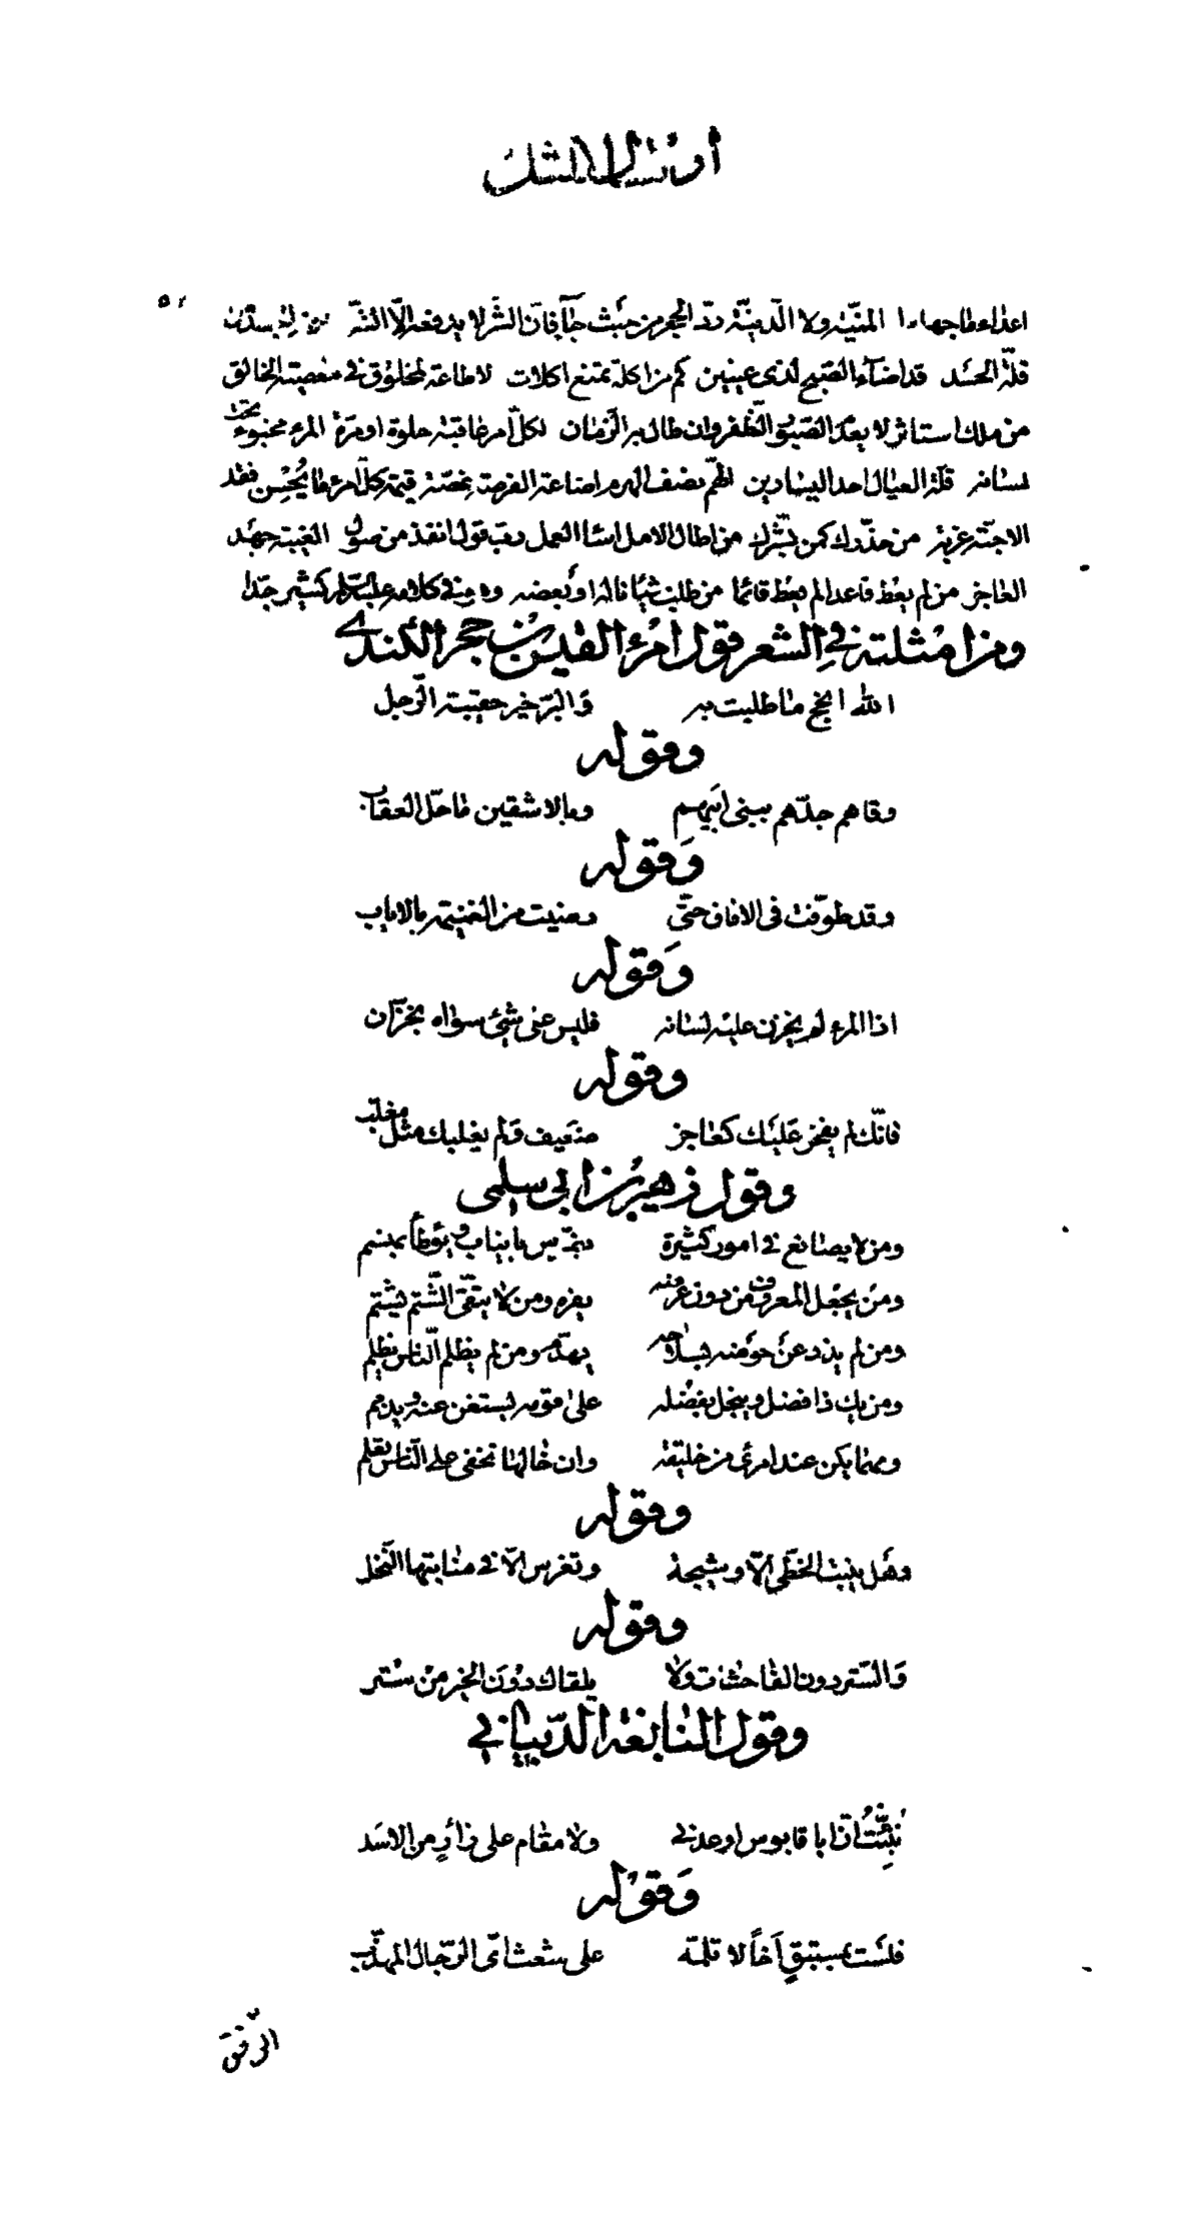 ٥٢
اعداء ما جهلوا المنيّة ولا الدنيّة ردّ الحجر من حيث جاءَ فانّ الشّر لا يدفعه الّا الشّر
قلّة الحسد قد اضآء الصّبح لذى عينين كم من اكلة تمنع اكلات لا طاعة لمخلوق فى معصية الخالق
من ملك استاثر لا يعدم الصّبور الظّفر وان طال به الزّمان لكلّ امر عاقبة حلوة او مرّة المرء مخبوّ تحت
لسانه قلّة العيال احد اليسارين الهمّ نصف الهرم اضاعة الفرصة غصّة قيمة كلّ امرء ما يُحْسِن فقد
الاحبّة غربة من حذّرك كمن بشّرك من اطال الامل اساء العمل ربّ قول انفذ من صول الغيبة جهد
العاجز من لم يعط قاعدا لم يعط قائما من طلب شيئا ناله او بعضه وهو فى كلامه عليه السّلام كثير جدّا
ومن امثلته فى الشعر قول امرء القيس بن حجر الكندى
الله انجح ما طلبت به وَالبرّ خير حقيبة الرّجل
وقوله
وقاهم جدّهم ببنى ابيهم وبالاشقين ما حلّ العقاب
وَقوله
وقد طوّفت فى الافاق حتّى رضيت من الغنيمة بالاياب
وَقوله
اذا المرء لم يخزن عليه لسانه فليس على شئ سواه بخزّان
وقوله
فانّك لم يفخر عَليْك كعاجز ضعيف وَلم يغلبك مثل مغلّب
وقول زهير بن ابى سلمى
ومن لا يصانع فى امور كثيرة يضرّس بانياب ويُوْطَأ بمنسم
ومَن يجْعل المعروف من دون عرضه يفره ومن لا يتّقى الشّتم يشتم
ومن لم يذد عَن حوضه بسلاحه يهدّم ومن لم يظلم النّاس يظلم
ومن يك ذا فضل ويبخل بفضله على قومه يستغن عنه ويذمم
ومهما يكن عند امرئ من خليقة وان خالها تخفى على النّاس تعلم
وقوله
وهَل ينبت الخطّى الّا وشيجة وتغرس الّا فى منابتها النّخل
وقوله
وَالستر دون الفاحشات ولا يلقاك دُوْنَ الخير منْ سْتر
وقول النابغة الذّبيانى
نُبِّئتُ انّ ابا قابوس اوعدنى ولا مقام على زأرٍ من الاسَد
وَقوله
فلَست بمستبقٍ اَخاً لا تلمّه على شعث اىّ الرّجال المهذّب
الرّفق